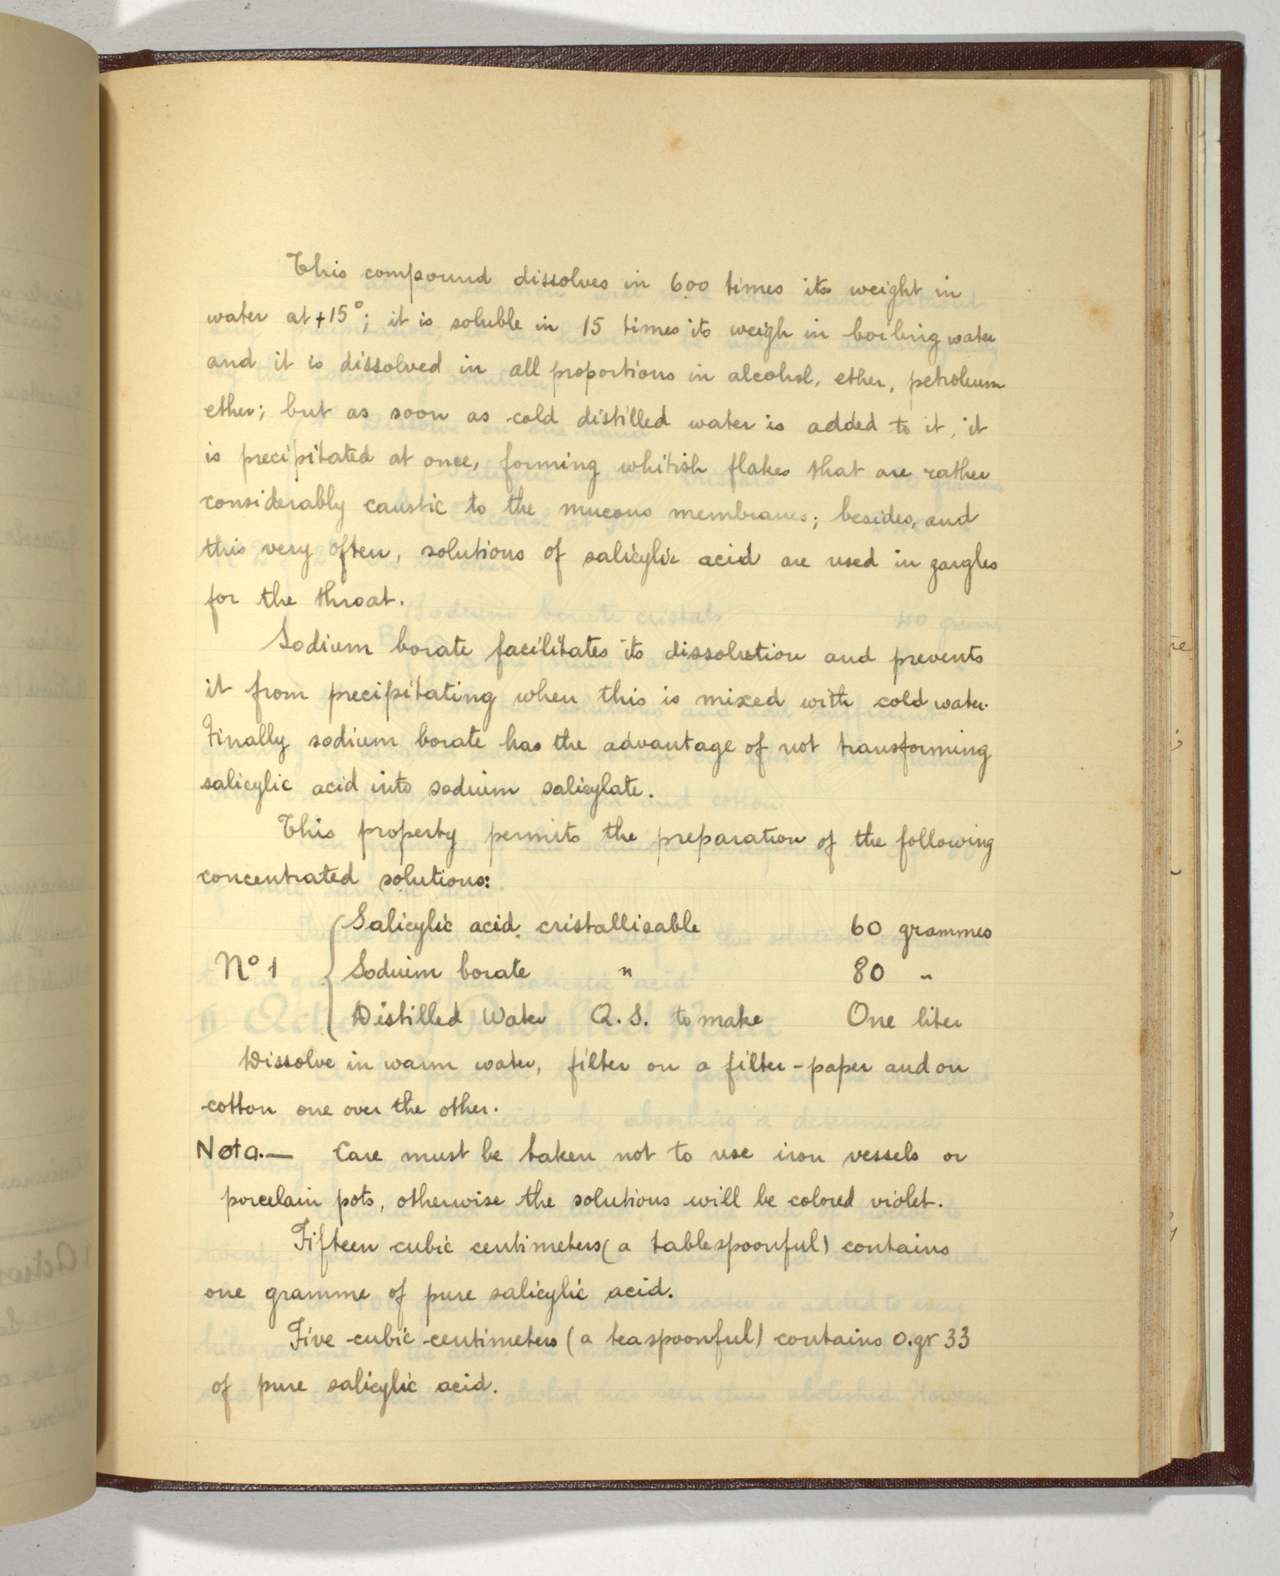 This compound dissolves in 600 times its weight in
water at +15°; it is soluble in 15 times its weigh in boiling water
and it is dissolved in all proportions in alcohol, ether, petroleum
ether; but as soon as cold distilled water is added to it, it
is precipitated at once, forming whitish flakes that are rather
considerably caustic to the mucous membranes; besides, and
this very often, solutions of salicylic acid are used in gargles
for the throat.
Sodium borate facilitates its dissolution and prevents
it from precipitating when this is mixed with cold water.
Finally sodium borate has the advantage of not transforming
salicylic acid into sodium salicylate.
This property permits the preparation of the following
concentrated solutions:
Salicylic acid cristallisable 60 grammes
Nº 1 Sodium borate " 80 "
Distilled Water Q.S. to make One liter
Dissolve in warm water, filter on a filter-paper and on
cotton one over the other.
Nota.— Care must be taken not to use iron vessels or
porcelain pots, otherwise the solutions will be colored violet.
Fifteen cubic centimeters (a tablespoonful) contains
one gramme of pure salicylic acid.
Five cubic centimeters (a teaspoonful) contains 0.gr 33
of pure salicylic acid.